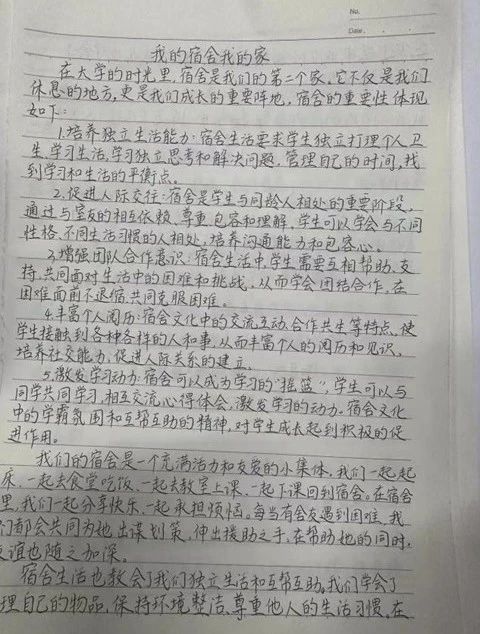 No.
Date.
我的宿舍我的家
在大学的时光里,宿舍是我们的第二个家,它不仅是我们
休息的地方,更是我们成长的重要阵地,宿舍的重要性体现
如下:
1.培养独立生活能力:宿舍生活要求学生独立打理个人卫
生,学习生活,学习独立思考和解决问题,管理自己的时间,找
到学习和生活的平衡点。
2.促进人际交往:宿舍是学生与同龄人相处的重要阶段,
通过与室友的相互依赖、尊重、包容和理解,学生可以学会与不同
性格、不同生活习惯的人相处,培养沟通能力和包容心。
3.增强团队合作意识:宿舍生活中,学生需要互相帮助、支
持,共同面对生活中的困难和挑战,从而学会团结合作,在
困难面前不退缩,共同克服困难。
4.丰富个人阅历:宿舍文化中的交流互动、合作共生等特点,使
学生接触到各种各样的人和事,从而丰富个人的阅历和见识,
培养社交能力,促进人际关系的建立。
5.激发学习动力:宿舍可以成为学习的"摇篮",学生可以与
同学共同学习,相互交流心得体会,激发学习的动力。宿舍文化
中的学霸氛围和互帮互助的精神,对学生成长起到积极的促
进作用。
我们的宿舍是一个充满活力和友爱的小集体,我们一起起
床,一起去食堂吃饭,一起去教室上课,一起下课回到宿舍。在宿舍
里,我们一起分享快乐,一起承担烦恼。每当有舍友遇到困难,我
们都会共同为她出谋划策,伸出援助之手,在帮助她的同时,
友谊也随之加深。
宿舍生活也教会了我们独立生活和互帮互助。我们学会了
理自己的物品,保持环境整洁,尊重他人的生活习惯。在